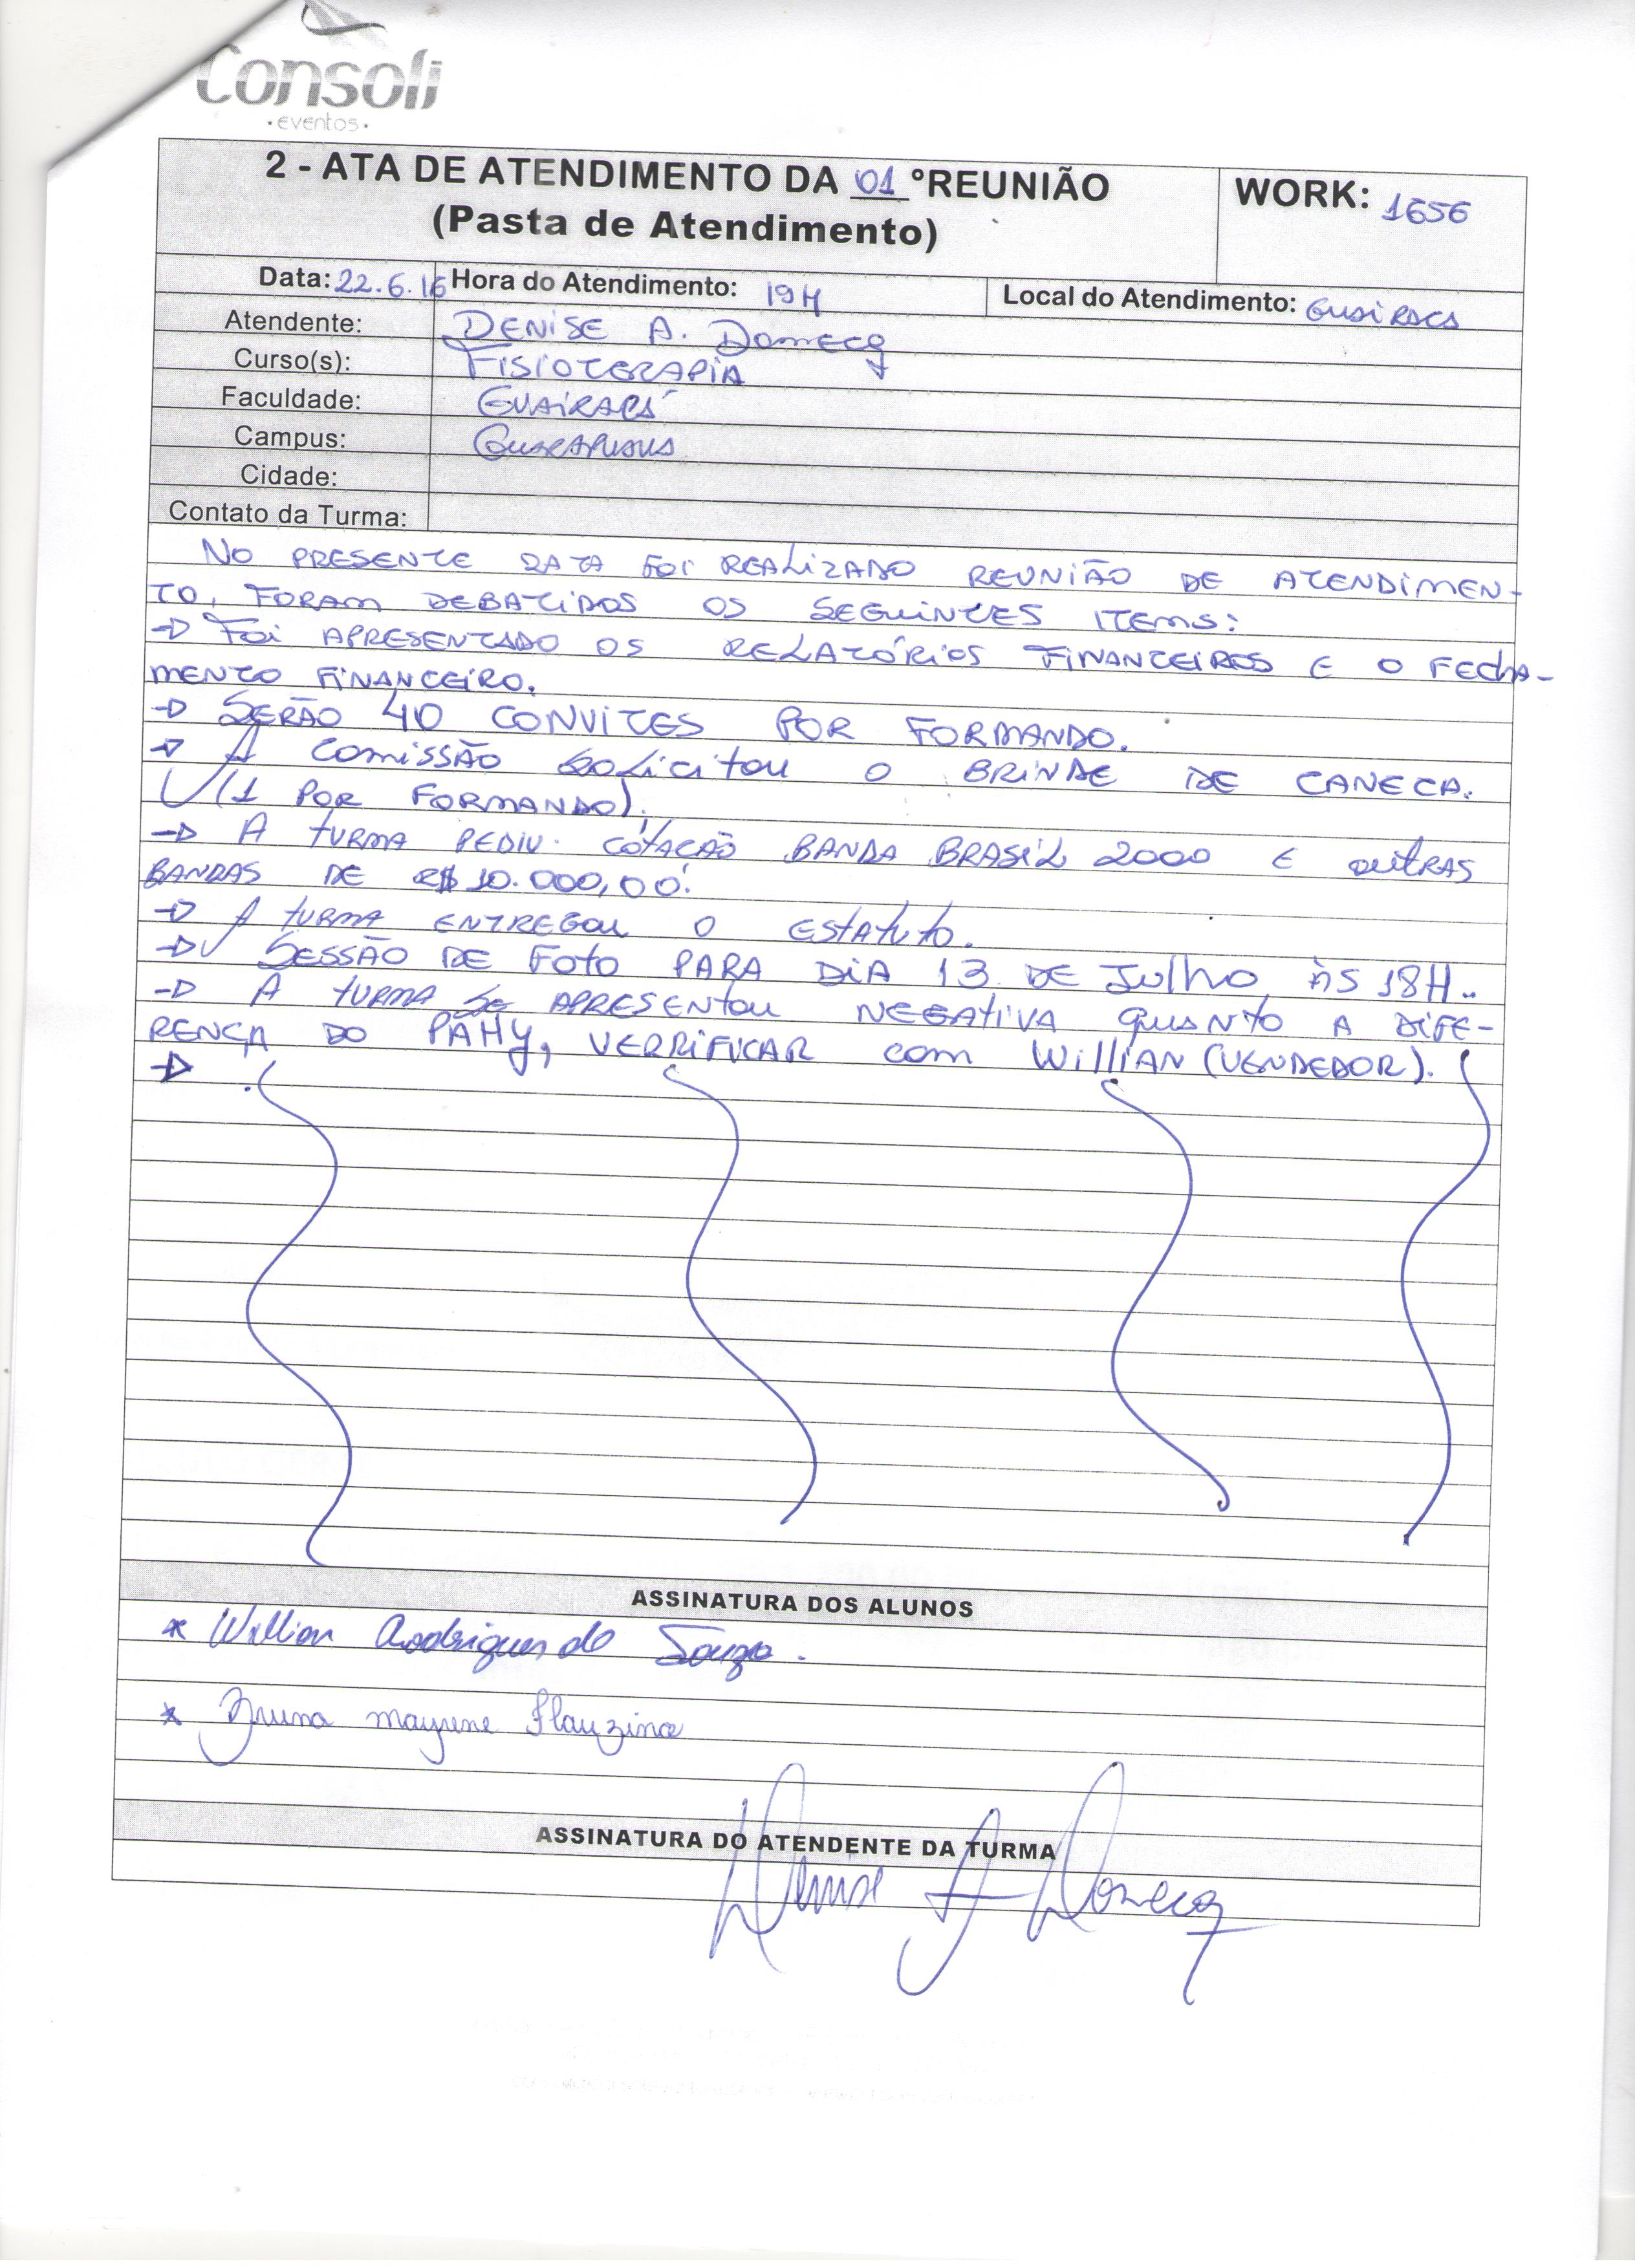 Consoli
•eventos•
2 - ATA DE ATENDIMENTO DA 01 ºREUNIÃO
(Pasta de Atendimento)
WORK: 1656
Data: 22.6.16 Hora do Atendimento: 19H Local do Atendimento: Guairaca
Atendente: DENISE A. Domecq
Curso(s): FISIOTERAPIA
Faculdade: GUAIRACÁ
Campus: Guarapuava
Cidade:
Contato da Turma:
NO PRESENTE DATA FOI REALIZADO REUNIÃO DE ATENDIMEN-
TO, FORAM DEBATIDOS OS SEGUINTES ITEMS:
→ FOI APRESENTADO OS RELATÓRIOS FINANCEIROS E O FECHA-
MENTO FINANCEIRO.
→ SERÃO 40 CONVITES POR FORMANDO.
→ A COMISSÃO SOLICITOU O BRINDE DE CANECA.
(1 POR FORMANDO).
→ A TURMA PEDIU COTAÇÃO BANDA BRASIL 2000 E OUTRAS
BANDAS DE R$ 10.000,00.
→ A TURMA ENTREGOU O ESTATUTO.
→ SESSÃO DE FOTO PARA DIA 13 DE Julho ÀS 18H..
→ A TURMA SE APRESENTOU NEGATIVA QUANTO A DIFE-
RENÇA DO PAHY, VERRIFICAR com Willian (VENDEDOR).
→
ASSINATURA DOS ALUNOS
* Willian Rodrigues de Souza.
* Bruna mayune Flauzina
ASSINATURA DO ATENDENTE DA TURMA
Denise A Domecq